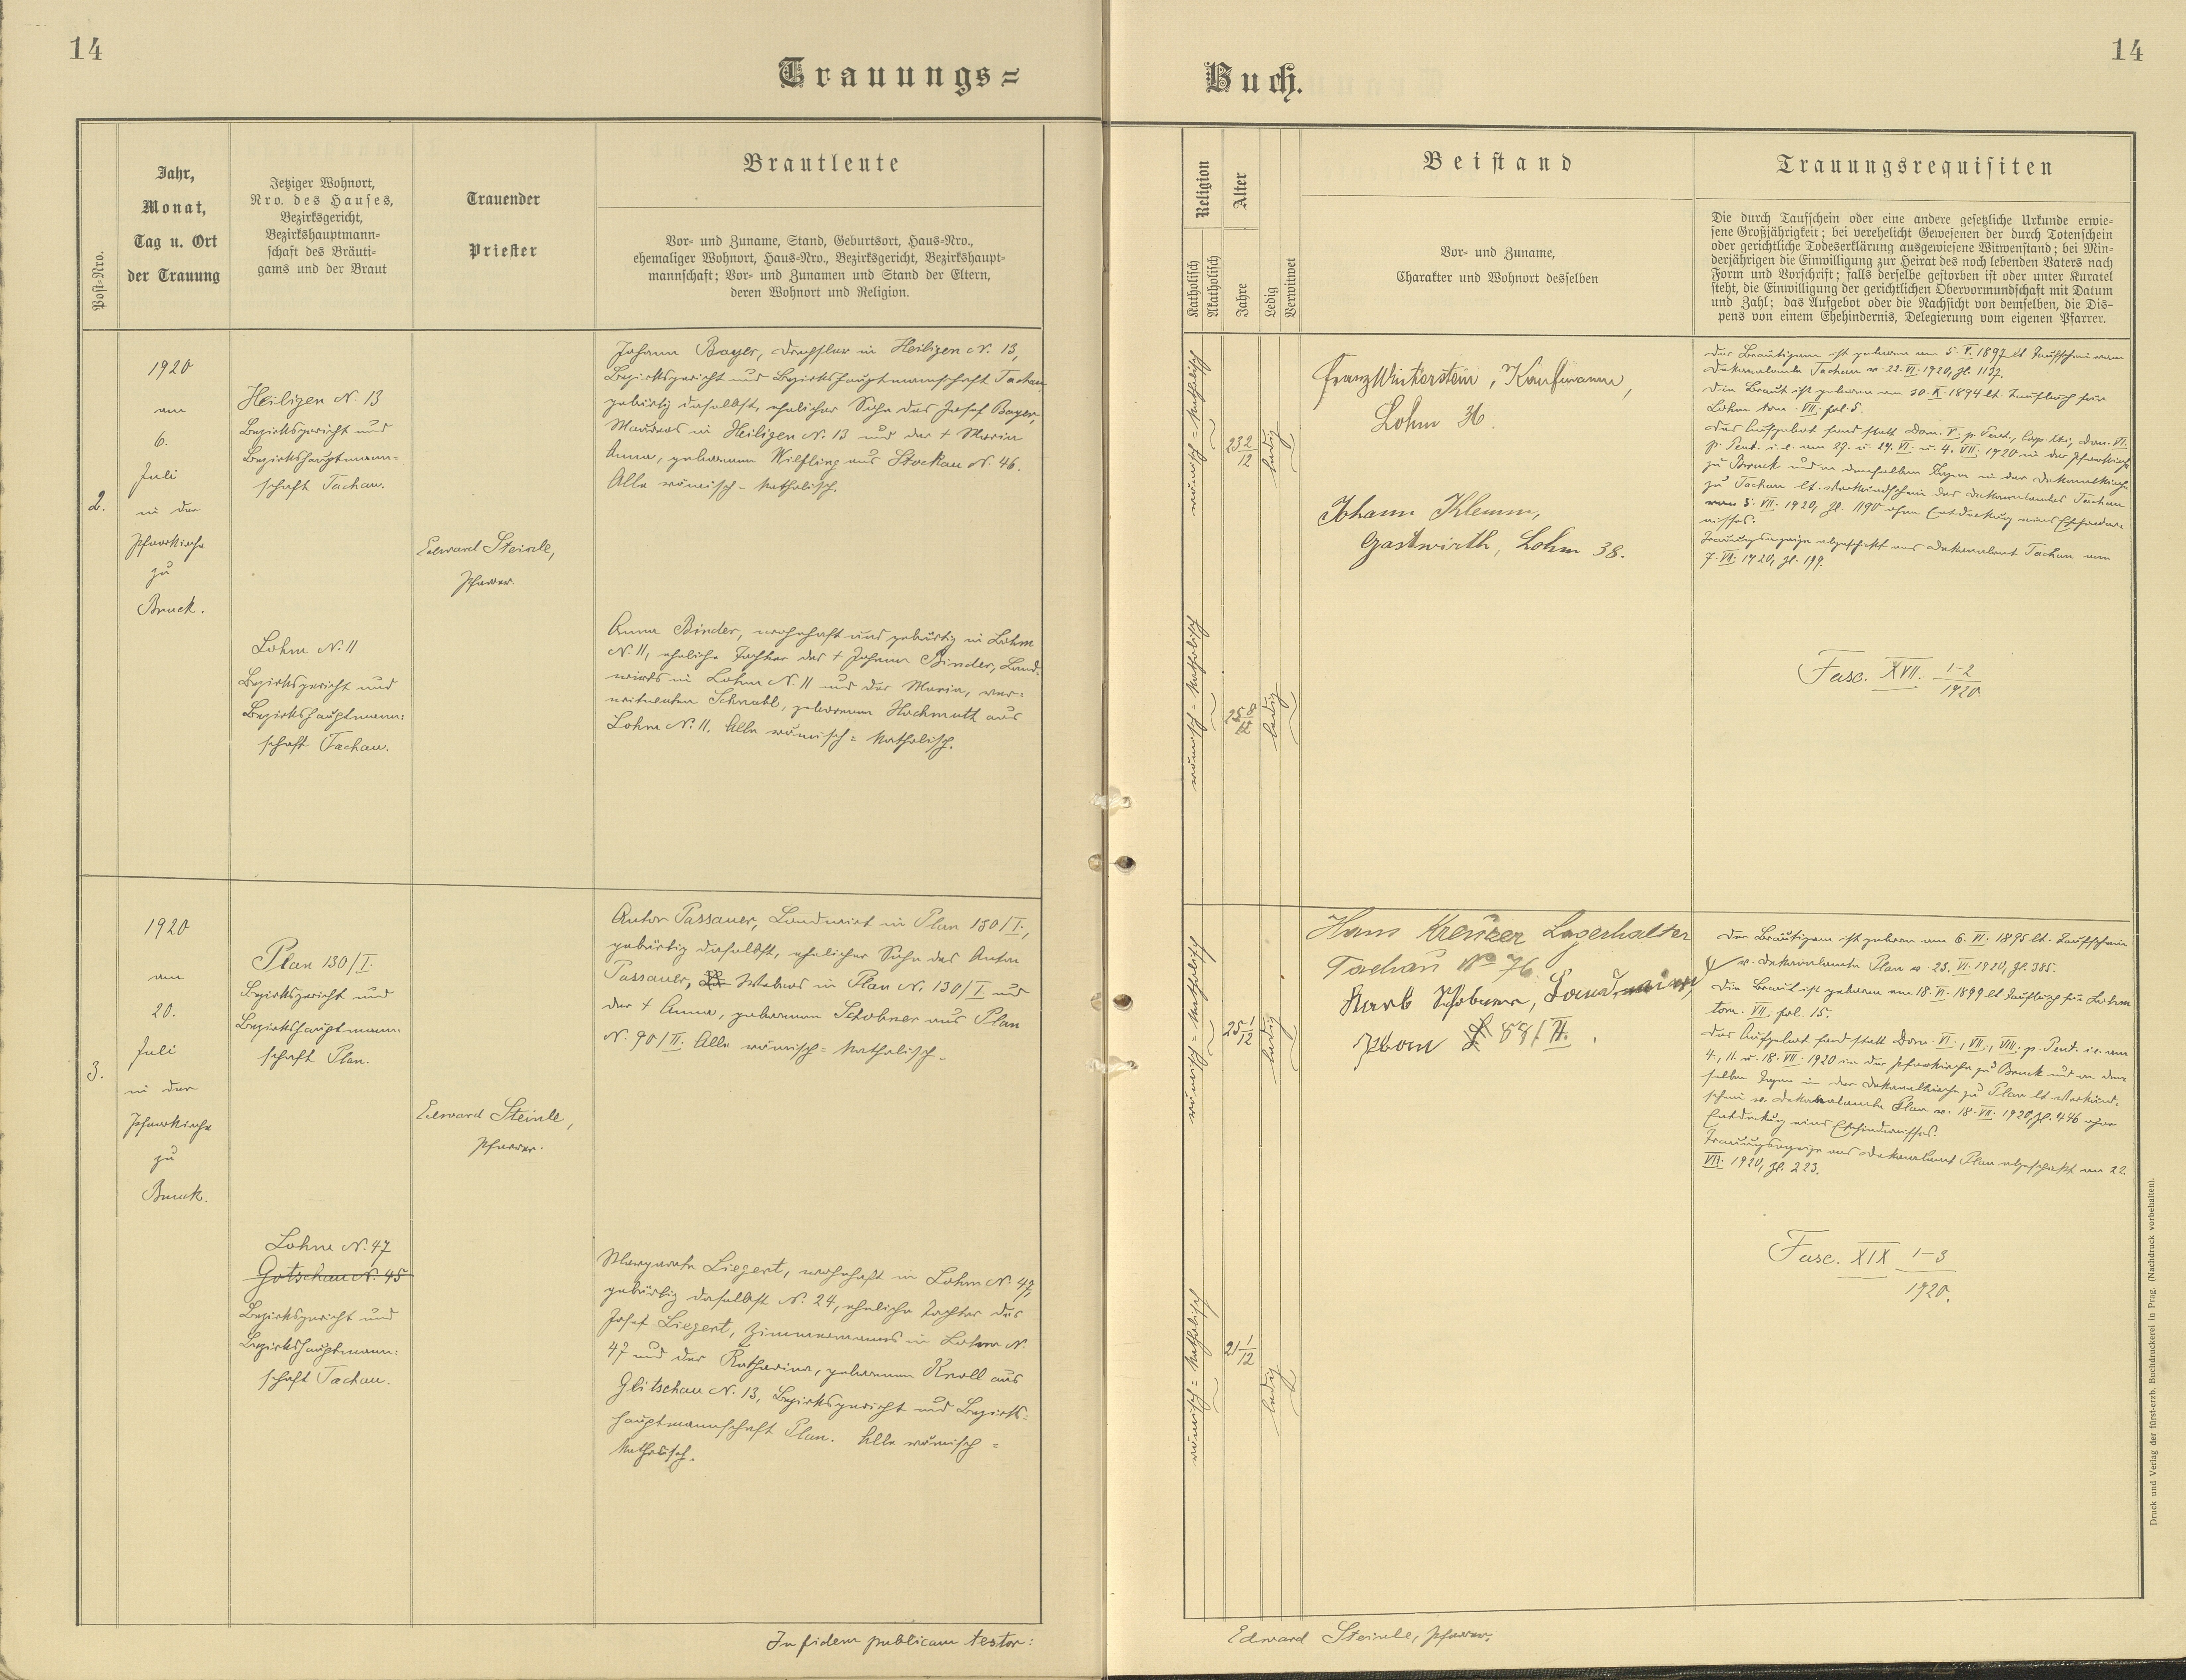 14
14
Trauungs=
Buch.
Post-Nro.
Jahr,
Monat,
Tag u. Ort
der Trauung
Jetziger Wohnort,
Nro. des Hauses,
Bezirksgericht,
Bezirkshauptmann=
schaft des Bräuti=
gams und der Braut
Trauender
Priester
Brautleute
Vor- und Zuname, Stand, Geburtsort, Haus-Nro.,
ehemaliger Wohnort, Haus-Nro., Bezirksgericht, Bezirkshaupt=
mannschaft; Vor- und Zunamen und Stand der Eltern,
deren Wohnort und Religion.
Religion
Katholisch
Akatholisch
Alter
Jahre
Ledig
Verwitwet
Beistand
Vor- und Zuname,
Charakter und Wohnort desselben
Trauungsrequisiten
Die durch Taufschein oder eine andere gesetzliche Urkunde erwie=
sene Großjährigkeit; bei verehelicht Gewesenen der durch Totenschein
oder gerichtliche Todeserklärung ausgewiesene Witwenstand; bei Min=
derjährigen die Einwilligung zur Heirat des noch lebenden Vaters nach
Form und Vorschrift; falls derselbe gestorben ist oder unter Kuratel
steht, die Einwilligung der gerichtlichen Obervormundschaft mit Datum
und Zahl; das Aufgebot oder die Nachsicht von demselben, die Dis=
pens von einem Ehehindernis, Delegierung vom eigenen Pfarrer.
2.
1920
am
6.
Juli
in der
Pfarrkirche
zu
Bruck.
Heiligen N. 13
Bezirksgericht und
Bezirkshauptmann=
schaft Tachau.
Lohm N. 11
Bezirksgericht und
Bezirkshauptmann=
schaft Tachau.
Edward Steinle,
Pfarrer.
Johann Bayer, Drechsler in Heiligen N. 13,
Bezirksgericht und Bezirkshauptmannschaft Tachau,
gebürtig daselbst, ehelicher Sohn des Josef Bayer,
Maurers in Heiligen N. 13 und der + Maria
Anna, geborenen Wilfling aus Stockau N. 46.
Alle römisch-katholisch.
Anna Binder, wohnhaft und gebürtig in Lohm
N. 11, eheliche Tochter des + Johann Binder, Land=
wirts in Lohm N. 11 und der Maria, ver=
witweten Schnabl, geborenen Hochmuth aus
Lohm N. 11. Alle römisch=katholisch.
römisch=katholisch
23 2/12
ledig
römisch=katholisch
25 8/12
ledig
Franz Winterstein, Kaufmann,
Lohm 36.
Johann Klemm,
Gastwirth, Lohm 38.
Der Bräutigam ist geboren am 5. V. 1897 lt. Taufschein vom
Dekanalamte Tachau v. 22. VI. 1920, Zl. 1137.
Die Braut ist geboren am 30. X. 1894 lt. Taufbuch für
Lohm tom. VII. fol. 5.
Das Aufgebot fand statt Dom. V. p. Pent., Dom. VI.
p. Pent. i. e. am 27. u. 29. VI. u. 4. VII. 1920 in der Pfarrkirche
zu Bruck und an denselben Tagen in der Dekanalkirche
zu Tachau lt. Verkündschein des Dekanalamtes Tachau
vom 5. VII. 1920, Zl. 1190 ohne Entdeckung eines Ehehinder=
nisses.
Trauungsanzeige abgeschickt ans Dekanalamt Tachau am
7. VII. 1920, Zl. 199.
Fasc. XVII. 1-2/1920
3.
1920
am
20.
Juli
in der
Pfarrkirche
zu
Bruck.
Plan 130/I.
Bezirksgericht und
Bezirkshauptmann=
schaft Plan.
Lohm N. 47
Gotschau N. 45
Bezirksgericht und
Bezirkshauptmann=
schaft Tachau.
Edward Steinle,
Pfarrer.
Anton Passauer, Landwirt in Plan 130/I.,
gebürtig daselbst, ehelicher Sohn des Anton
Passauer, Webers in Plan N. 130/I und
der + Anna, geborenen Schobner aus Plan
N. 90/II. Alle römisch=katholisch.
Margareta Liegert, wohnhaft in Lohm N. 47,
gebürtig daselbst N. 24, eheliche Tochter des
Josef Liegert, Zimmermanns in Lohm N.
47 und der Katharina, geborenen Kroll aus
Glitschau N. 13, Bezirksgericht und Bezirks=
hauptmannschaft Plan. Alle römisch=
katholisch.
römisch=katholisch
25 1/12
ledig
römisch=katholisch
21 1/12
ledig
Hans Lagerhalter
Tachau No 76.
Schobner,
Plan 88/II.
Der Bräutigam ist geboren am 6. VI. 1895 lt. Taufschein
v. Dekanalamte Plan v. 23. VI. 1920, Zl. 385.
Die Braut ist geboren am 18. VI. 1899 lt. Taufbuch für Lohm
tom. VII. fol. 15.
Das Aufgebot fand statt Dom. VI., VII., VIII. p. Pent. i. e. am
4., 11. u. 18. VII. 1920 in der Pfarrkirche zu Bruck und an den=
selben Tagen in der Dekanalkirche zu Plan lt. Verkünd=
schein v. Dekanalamte Plan v. 18. VII. 1920, Zl. 446 ohne
Entdeckung eines Ehehindernisses.
Trauungsanzeige ans Dekanalamt Plan abgeschickt am 22.
VII. 1920, Zl. 223.
Fasc. XIX 1-3/1920.
In fidem publicam testor:
Edward Steinle, Pfarrer.
Druck und Verlag der fürst-erzb. Buchdruckerei in Prag. (Nachdruck vorbehalten).